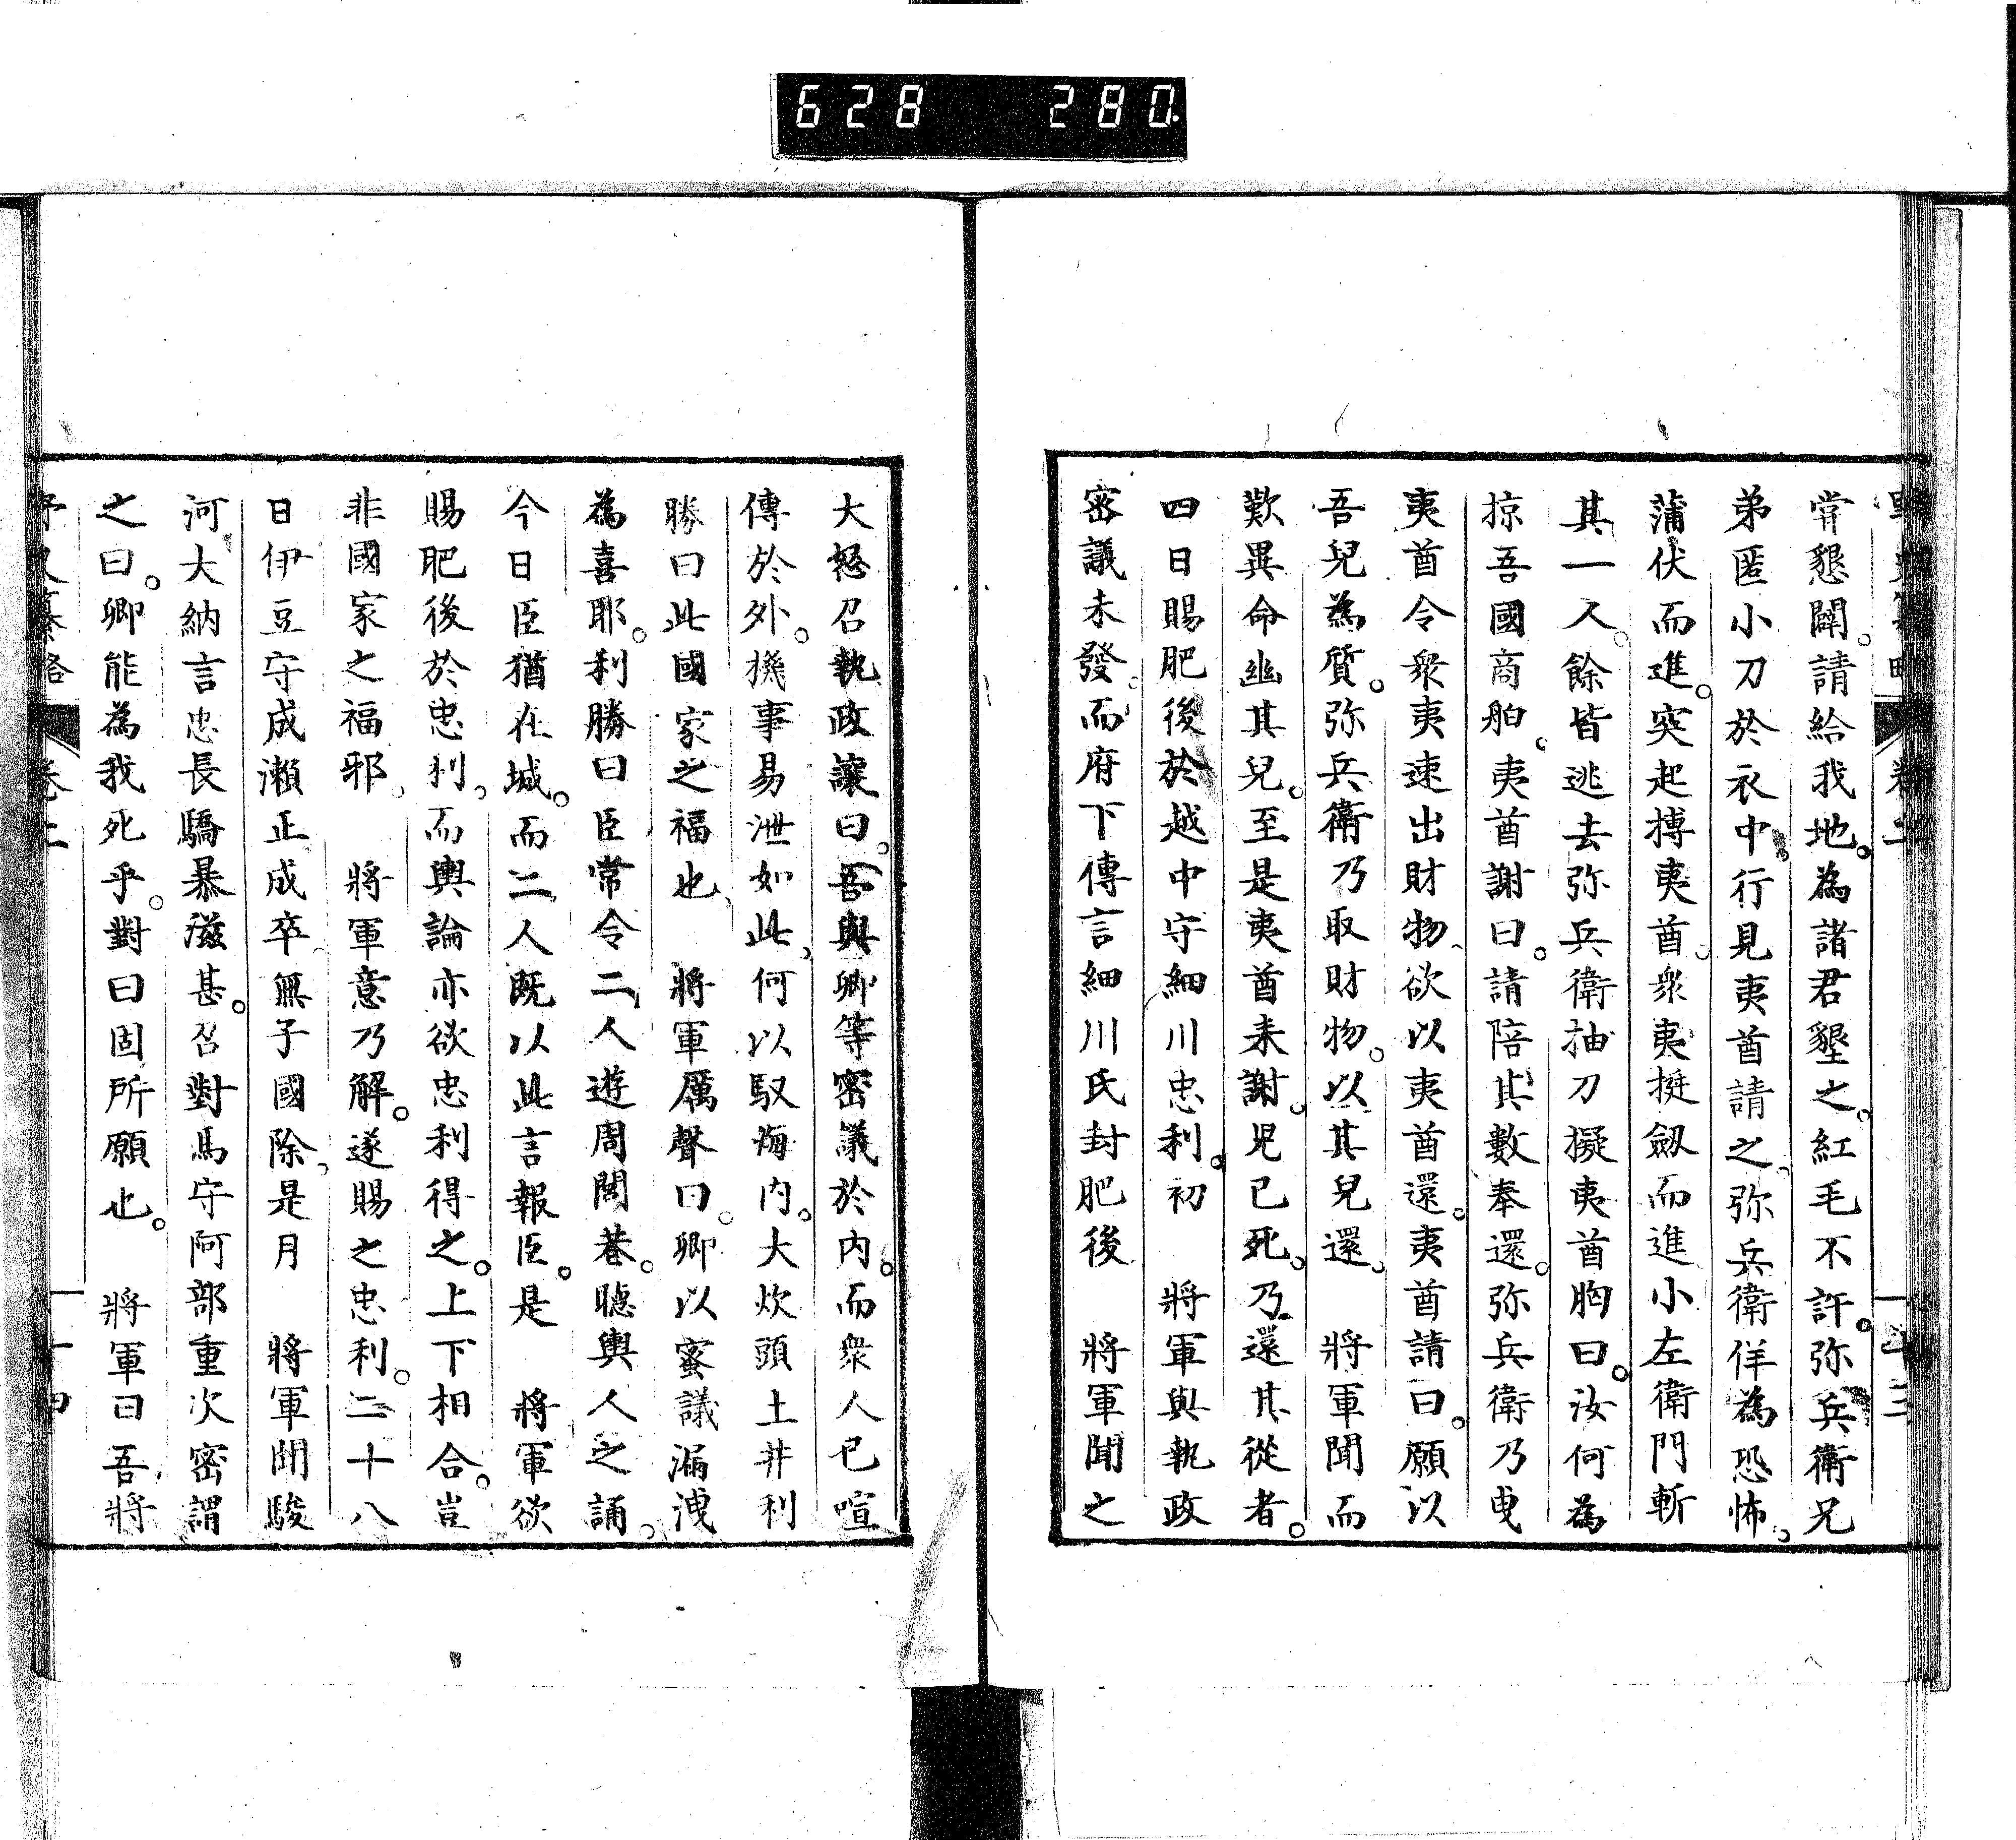 628 280
嘗懇闢。請給我地。為諸君墾之。紅毛不許。弥兵衛兄
弟匿小刀於衣中。行見夷酋請之。弥兵衛佯為恐怖。
蒲伏而進。突起搏夷酋。衆夷挺劔而進小左衛門斬
其一人。餘皆逃去弥兵衛抽刀擬夷酋胸曰。汝何為
掠吾國商舶。夷酋謝曰。請陪其數奉還。弥兵衛乃曳
夷酋令衆夷速出財物。欲以夷酋還。夷酋請曰。願以
吾兒為質。弥兵衛乃取財物。以其兒還。 將軍聞而
歎異命幽其兒。至是夷酋来謝。兒已死。乃還其從者。
四日賜肥後於越中守細川忠利。初 將軍與執政
密議未發。而府下傳言細川氏封肥後 將軍聞之
大怒召執政讓曰。吾與卿等密議於内。而衆人已喧
傳於外。機事易泄如此。何以馭海内。大炊頭土井利
勝曰此國家之福也。 將軍厲聲曰。卿以蜜議漏洩
為喜耶。利勝曰臣常令二人遊周閭巷。聴輿人之誦。
今日臣猶在城。而二人既以此言報臣。是 將軍欲
賜肥後於忠利。而輿論亦欲忠利得之。上下相合。豈
非國家之福邪。 將軍意乃解。遂賜之忠利。二十八
日伊豆守成瀬正成卒。無子國除。是月 將軍聞駿
河大納言忠長驕暴滋甚。召對馬守阿部重次密謂
之曰。卿能為我死乎。對曰固所願也。 將軍曰吾將